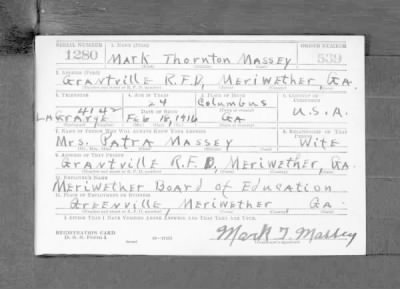 SERIAL NUMBER 1. NAME (Print) ORDER NUMBER
1280 Mark Thornton Massey 539
2. ADDRESS (Print)
Grantville R.F.D, Meriwether, Ga.
3. TELEPHONE 4. AGE IN YEARS 5. PLACE OF BIRTH 6. COUNTRY OF CITIZENSHIP
4142 24 Columbus
LaGrange DATE OF BIRTH U.S.A.
Feb 18, 1916 Ga
7. NAME OF PERSON WHO WILL ALWAYS KNOW YOUR ADDRESS 8. RELATIONSHIP OF THAT PERSON
Mrs. Patra Massey Wife
9. ADDRESS OF THAT PERSON
Grantville R.F.D, Meriwether, Ga.
10. EMPLOYER'S NAME
Meriwether Board of Education
11. PLACE OF EMPLOYMENT OR BUSINESS
Greenville, Meriwether Ga.
I AFFIRM THAT I HAVE VERIFIED ABOVE ANSWERS AND THAT THEY ARE TRUE.
REGISTRATION CARD
D. S. S. Form 1
Mark T. Massey